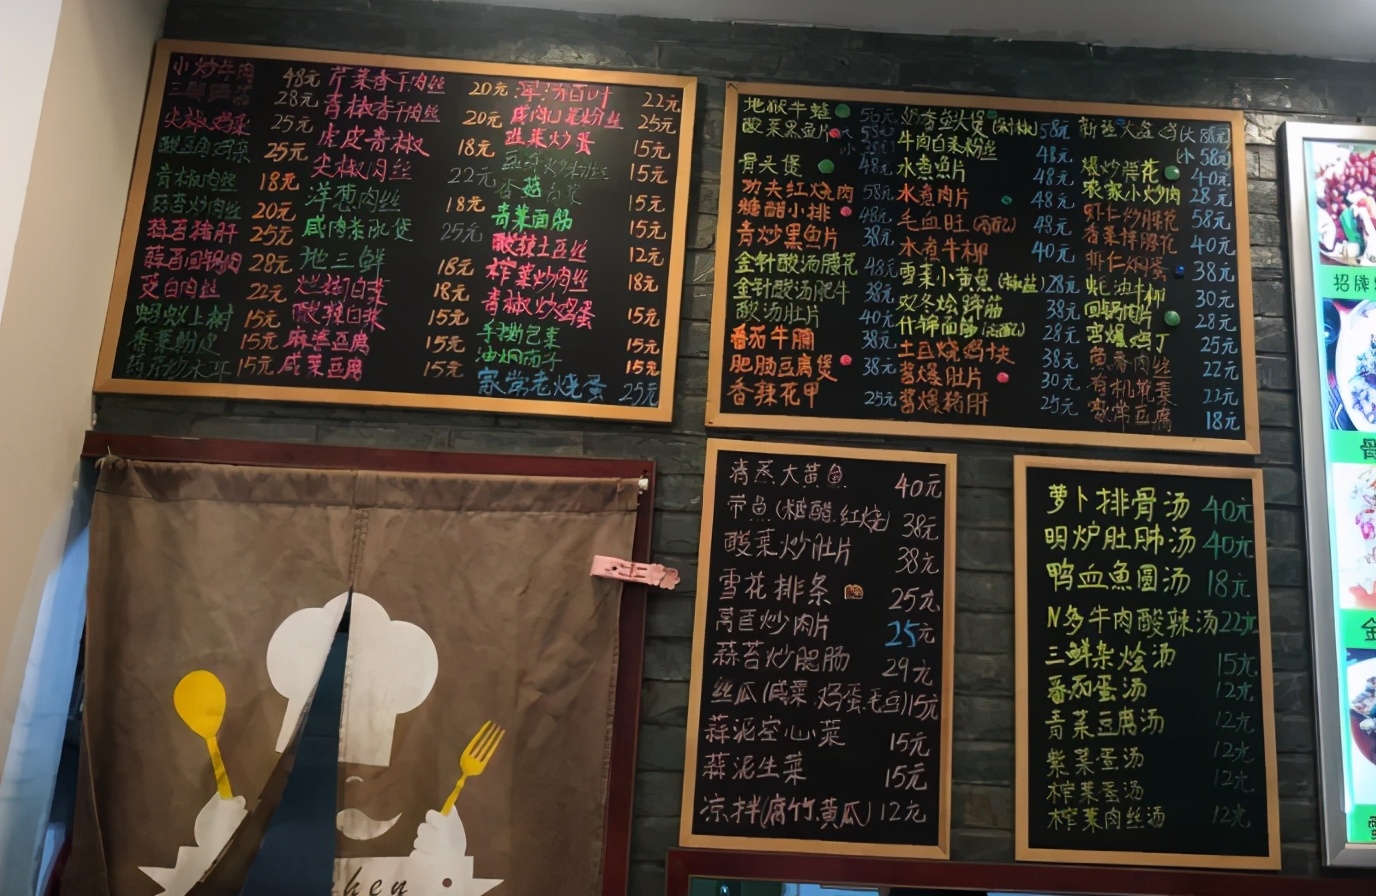 小炒牛肉 48元
28元
尖椒鸡杂 25元
酸豆角鸡杂 25元
青椒肉丝 18元
蒜苔炒肉丝 20元
蒜苗猪肝 25元
蒜苗回锅肉 28元
茭白肉丝 22元
蚂蚁上树 15元
香菜粉皮 15元
15元
芹菜香干肉丝 20元
青椒香干肉丝 20元
虎皮青椒 18元
尖椒肉丝 22元
洋葱肉丝 18元
咸肉蒸冰煲 25元
地三鲜 18元
烂糊白菜 18元
酸辣白菜 15元
麻婆豆腐 15元
咸菜豆腐 15元
百叶 22元
25元
韭菜炒蛋 15元
15元
15元
青菜面筋 15元
酸辣土豆丝 12元
榨菜炒肉丝 18元
青椒炒鸡蛋 15元
手撕包菜 15元
油焖茄子 15元
家常老烧蛋 25元
地狱牛蛙 56元
酸菜黑鱼片 大 58元
小
骨头煲 48元
功夫红烧肉 58元
糖醋小排 48元
青炒黑鱼片 38元
金针酸汤腰花 48元
金针酸汤肥牛 38元
酸汤肚片 40元
番茄牛腩 38元
肥肠豆腐煲 38元
香辣花甲 25元
58元
牛肉白菜粉丝 48元
水煮鱼片 48元
水煮肉片 48元
毛血旺 48元
水煮牛柳 40元
雪菜小黄鱼 28元
双冬烩蹄筋 38元
什锦面筋 28元
土豆烧鸡块 38元
酱爆肚片 30元
酱爆猪肝 25元
大 88元
小 58元
爆炒腰花 40元
农家小炒肉 28元
虾仁炒腰花 58元
香菜拌腰花 40元
虾仁焖蛋 38元
蚝油牛柳 30元
回锅肉片 28元
宫爆鸡丁 25元
鱼香肉丝 22元
有机花菜 22元
家常豆腐 18元
清蒸大黄鱼 40元
带鱼(糖醋.红烧) 38元
酸菜炒肚片 38元
雪花排条 25元
莴苣炒肉片 25元
蒜苔炒肥肠 29元
丝瓜(咸菜.鸡蛋.毛豆) 15元
蒜泥空心菜 15元
蒜泥生菜 15元
凉拌(腐竹.黄瓜) 12元
萝卜排骨汤 40元
明炉肚肺汤 40元
鸭血鱼圆汤 18元
N多牛肉酸辣汤 22元
三鲜杂烩汤 15元
番茄蛋汤 12元
青菜豆腐汤 12元
紫菜蛋汤 12元
榨菜蛋汤 12元
榨菜肉丝汤 12元
招牌